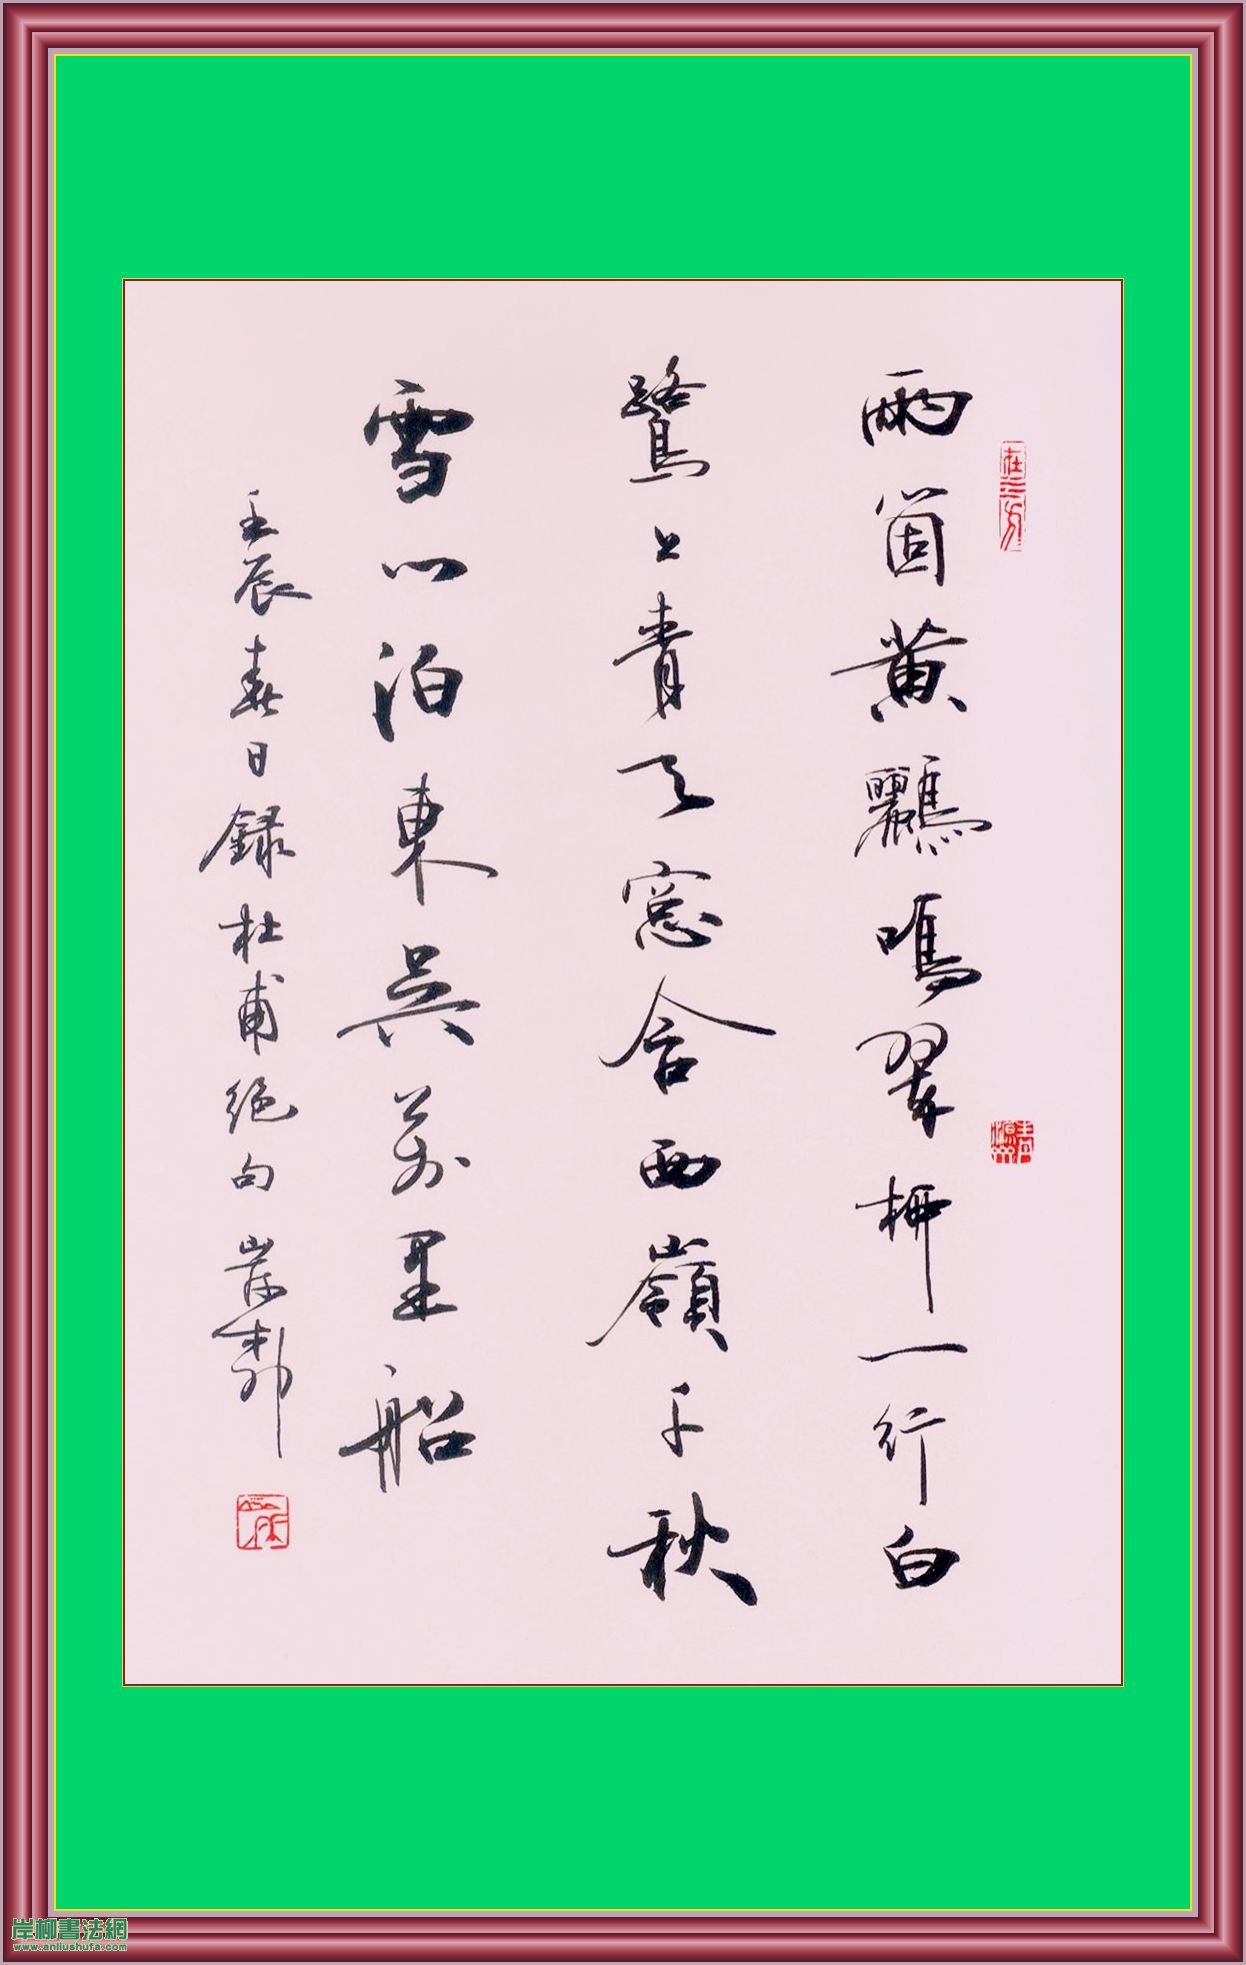 兩箇黄鸝鳴翠柳一行白
鷺上青天窓含西嶺千秋
雪門泊東吳萬里船
壬辰春日録杜甫絕句岸柳
岸柳書法網
www.anliushufa.com